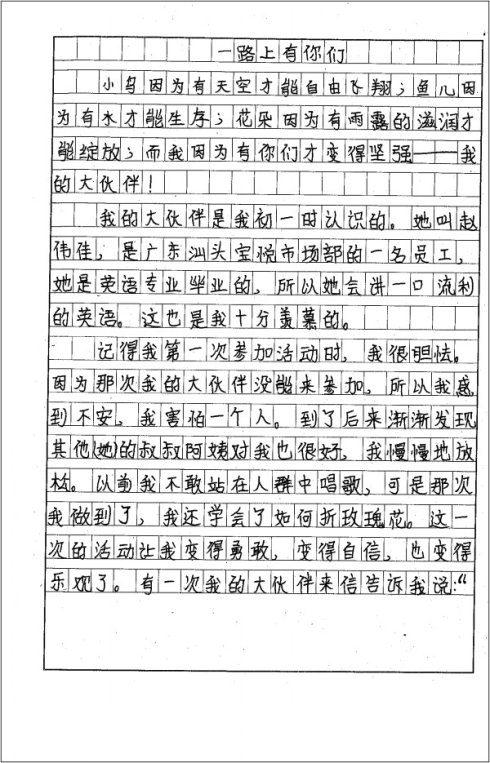 一路上有你们
小鸟因为有天空才能自由飞翔；鱼儿因
为有水才能生存；花朵因为有雨露的滋润才
能绽放；而我因为有你们才变得坚强——我
的大伙伴！
我的大伙伴是我初一时认识的。她叫赵
伟佳，是广东汕头宝悦市场部的一名员工，
她是英语专业毕业的，所以她会讲一口流利
的英语。这也是我十分羡慕的。
记得我第一次参加活动时，我很胆怯。
因为那次我的大伙伴没能来参加，所以我感
到不安，我害怕一个人。到了后来渐渐发现
其他(她)的叔叔阿姨对我也很好，我慢慢地放
松。以前我不敢站在人群中唱歌，可是那次
我做到了，我还学会了如何折玫瑰花。这一
次的活动让我变得勇敢，变得自信，也变得
乐观了。有一次我的大伙伴来信告诉我说：“